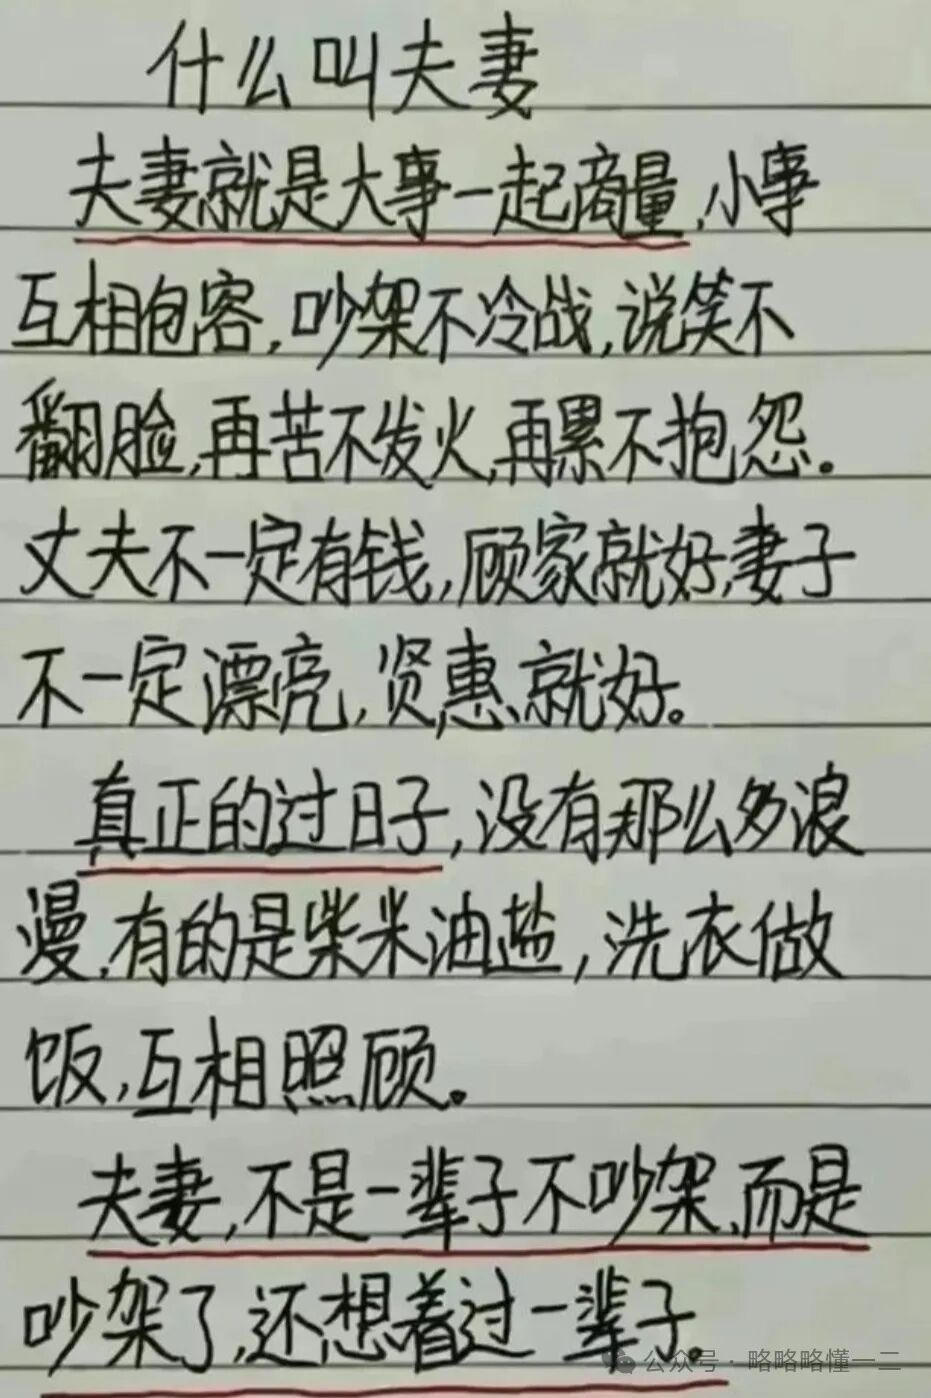 什么叫夫妻
夫妻就是大事一起商量,小事
互相包容,吵架不冷战,说笑不
翻脸,再苦不发火,再累不抱怨。
丈夫不一定有钱,顾家就好,妻子
不一定漂亮,贤惠就好。
真正的过日子,没有那么多浪
漫,有的是柴米油盐,洗衣做
饭,互相照顾。
夫妻,不是一辈子不吵架,而是
吵架了,还想着过一辈子。
公众号·略略略懂一二